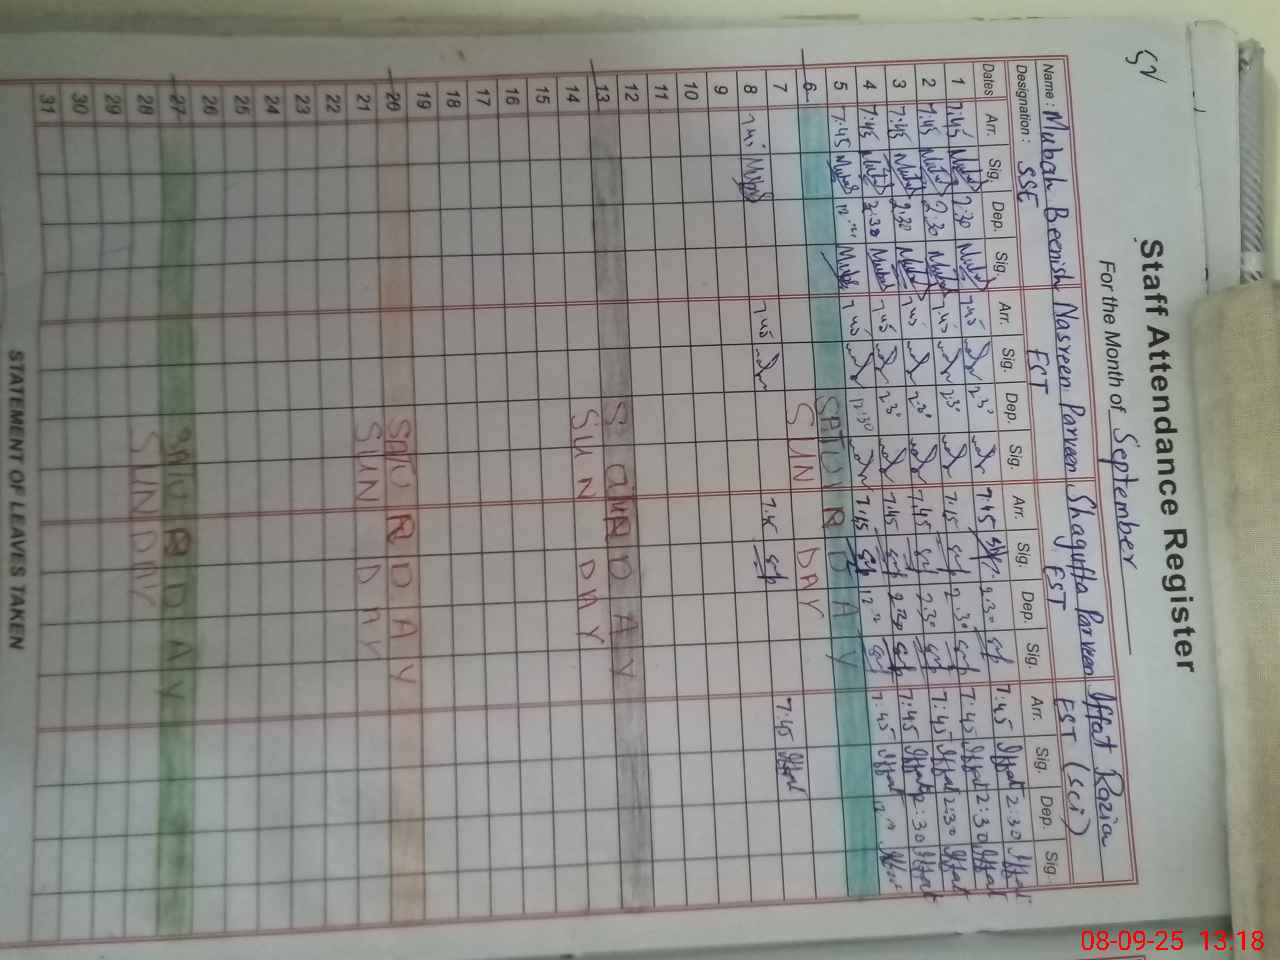 Staff Attendance Register
For the Month of September
Name: Mubah Beenish Nasreen Parveen Shagufta Parveen Iffat Razia
Designation: SSE EST EST EST (sci)
Dates Arr. Sig. Dep. Sig. Arr. Sig. Dep. Sig. Arr. Sig. Dep. Sig. Arr. Sig. Dep. Sig.
1 7:45 2:30 7:45 2:30 7:45 2:30 7:45 Iffat 2:30 Iffat
2 7:45 2:30 7:45 2:30 7:45 2:30 7:45 Iffat 2:30 Iffat
3 7:45 2:30 7:45 2:30 7:45 2:30 7:45 Iffat 2:30 Iffat
4 7:45 2:30 7:45 2:30 7:45 2:30 7:45 Iffat 2:30 Iffat
5 7:45 7:45 12:30 7:45 7:45 Iffat Iffat
6 SATURDAY
7 SUNDAY
8 7:45 7:45 7:45 7:45 Iffat
9
10
11
12
13 SATURDAY
14 SUNDAY
15
16
17
18
19
20 SATURDAY
21 SUNDAY
22
23
24
25
26
27 SATURDAY
28 SUNDAY
29
30
31
STATEMENT OF LEAVES TAKEN
08-09-25 13:18